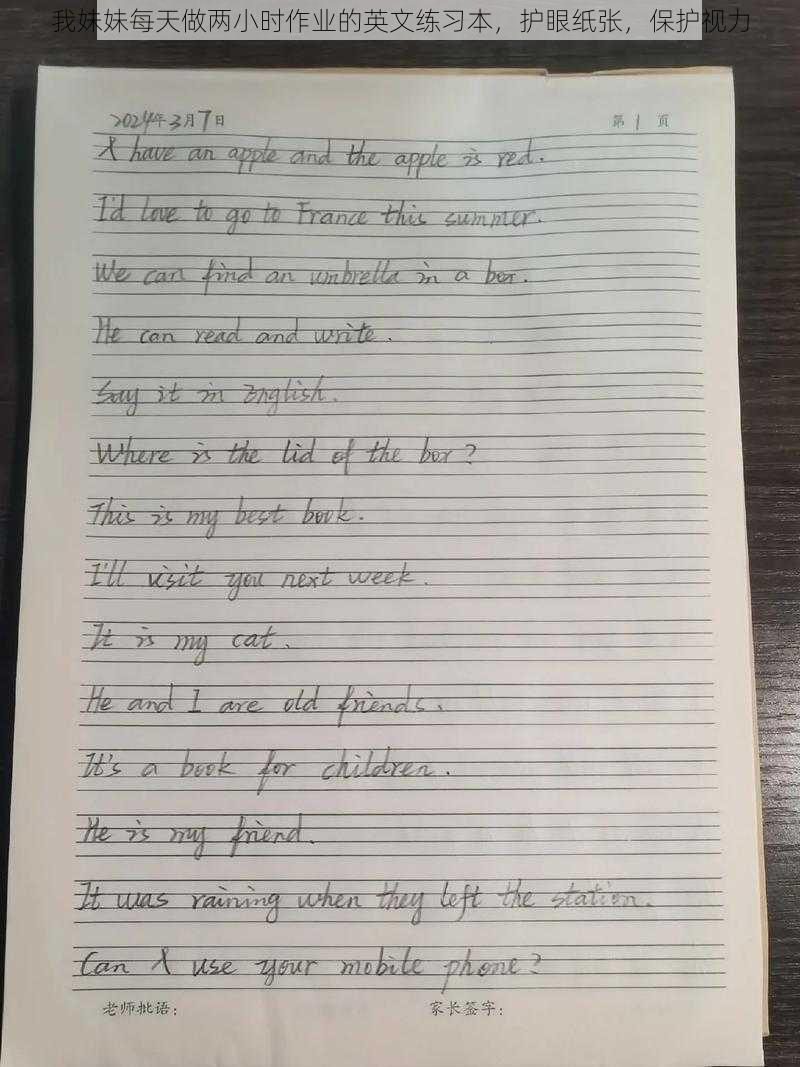 我妹妹每天做两小时作业的英文练习本，护眼纸张，保护视力
2024年3月7日 第1页
I have an apple and the apple is red.
I'd love to go to France this summer.
We can find an umbrella in a box.
He can read and write.
Say it in English.
Where is the lid of the box?
This is my best book.
I'll visit you next week.
It is my cat.
He and I are old friends.
It's a book for children.
He is my friend.
It was raining when they left the station.
Can I use your mobile phone?
老师批语： 家长签字：